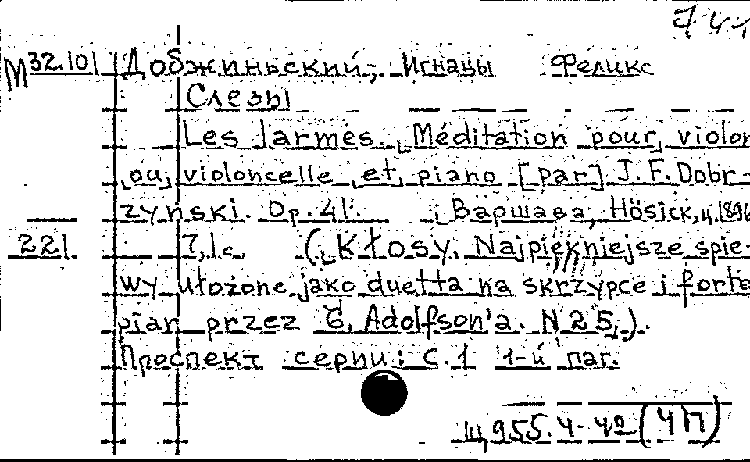 М 32.101 Добжиньский, Игнацы Феликс
Слезы
Les larmes. Méditation pour violon
ou violoncelle et piano [par] J. F. Dobr-
zyński. Op. 41. Варшава, Hösick, ц. 1896
221. 7, 1 с. (Kłosy. Najpiękniejsze śpie-
wy ułożone jako duetta na skrzypce i forte
pian przez G. Adolfson'a. N 25.).
Проспект серии: с. 1 1-й паг.
Щ 955.4-42 (4П)